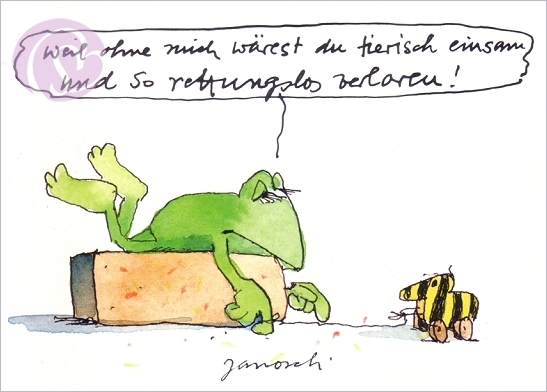 weil ohne mich wärest du tierisch einsam
und so rettungslos verloren!
janosch